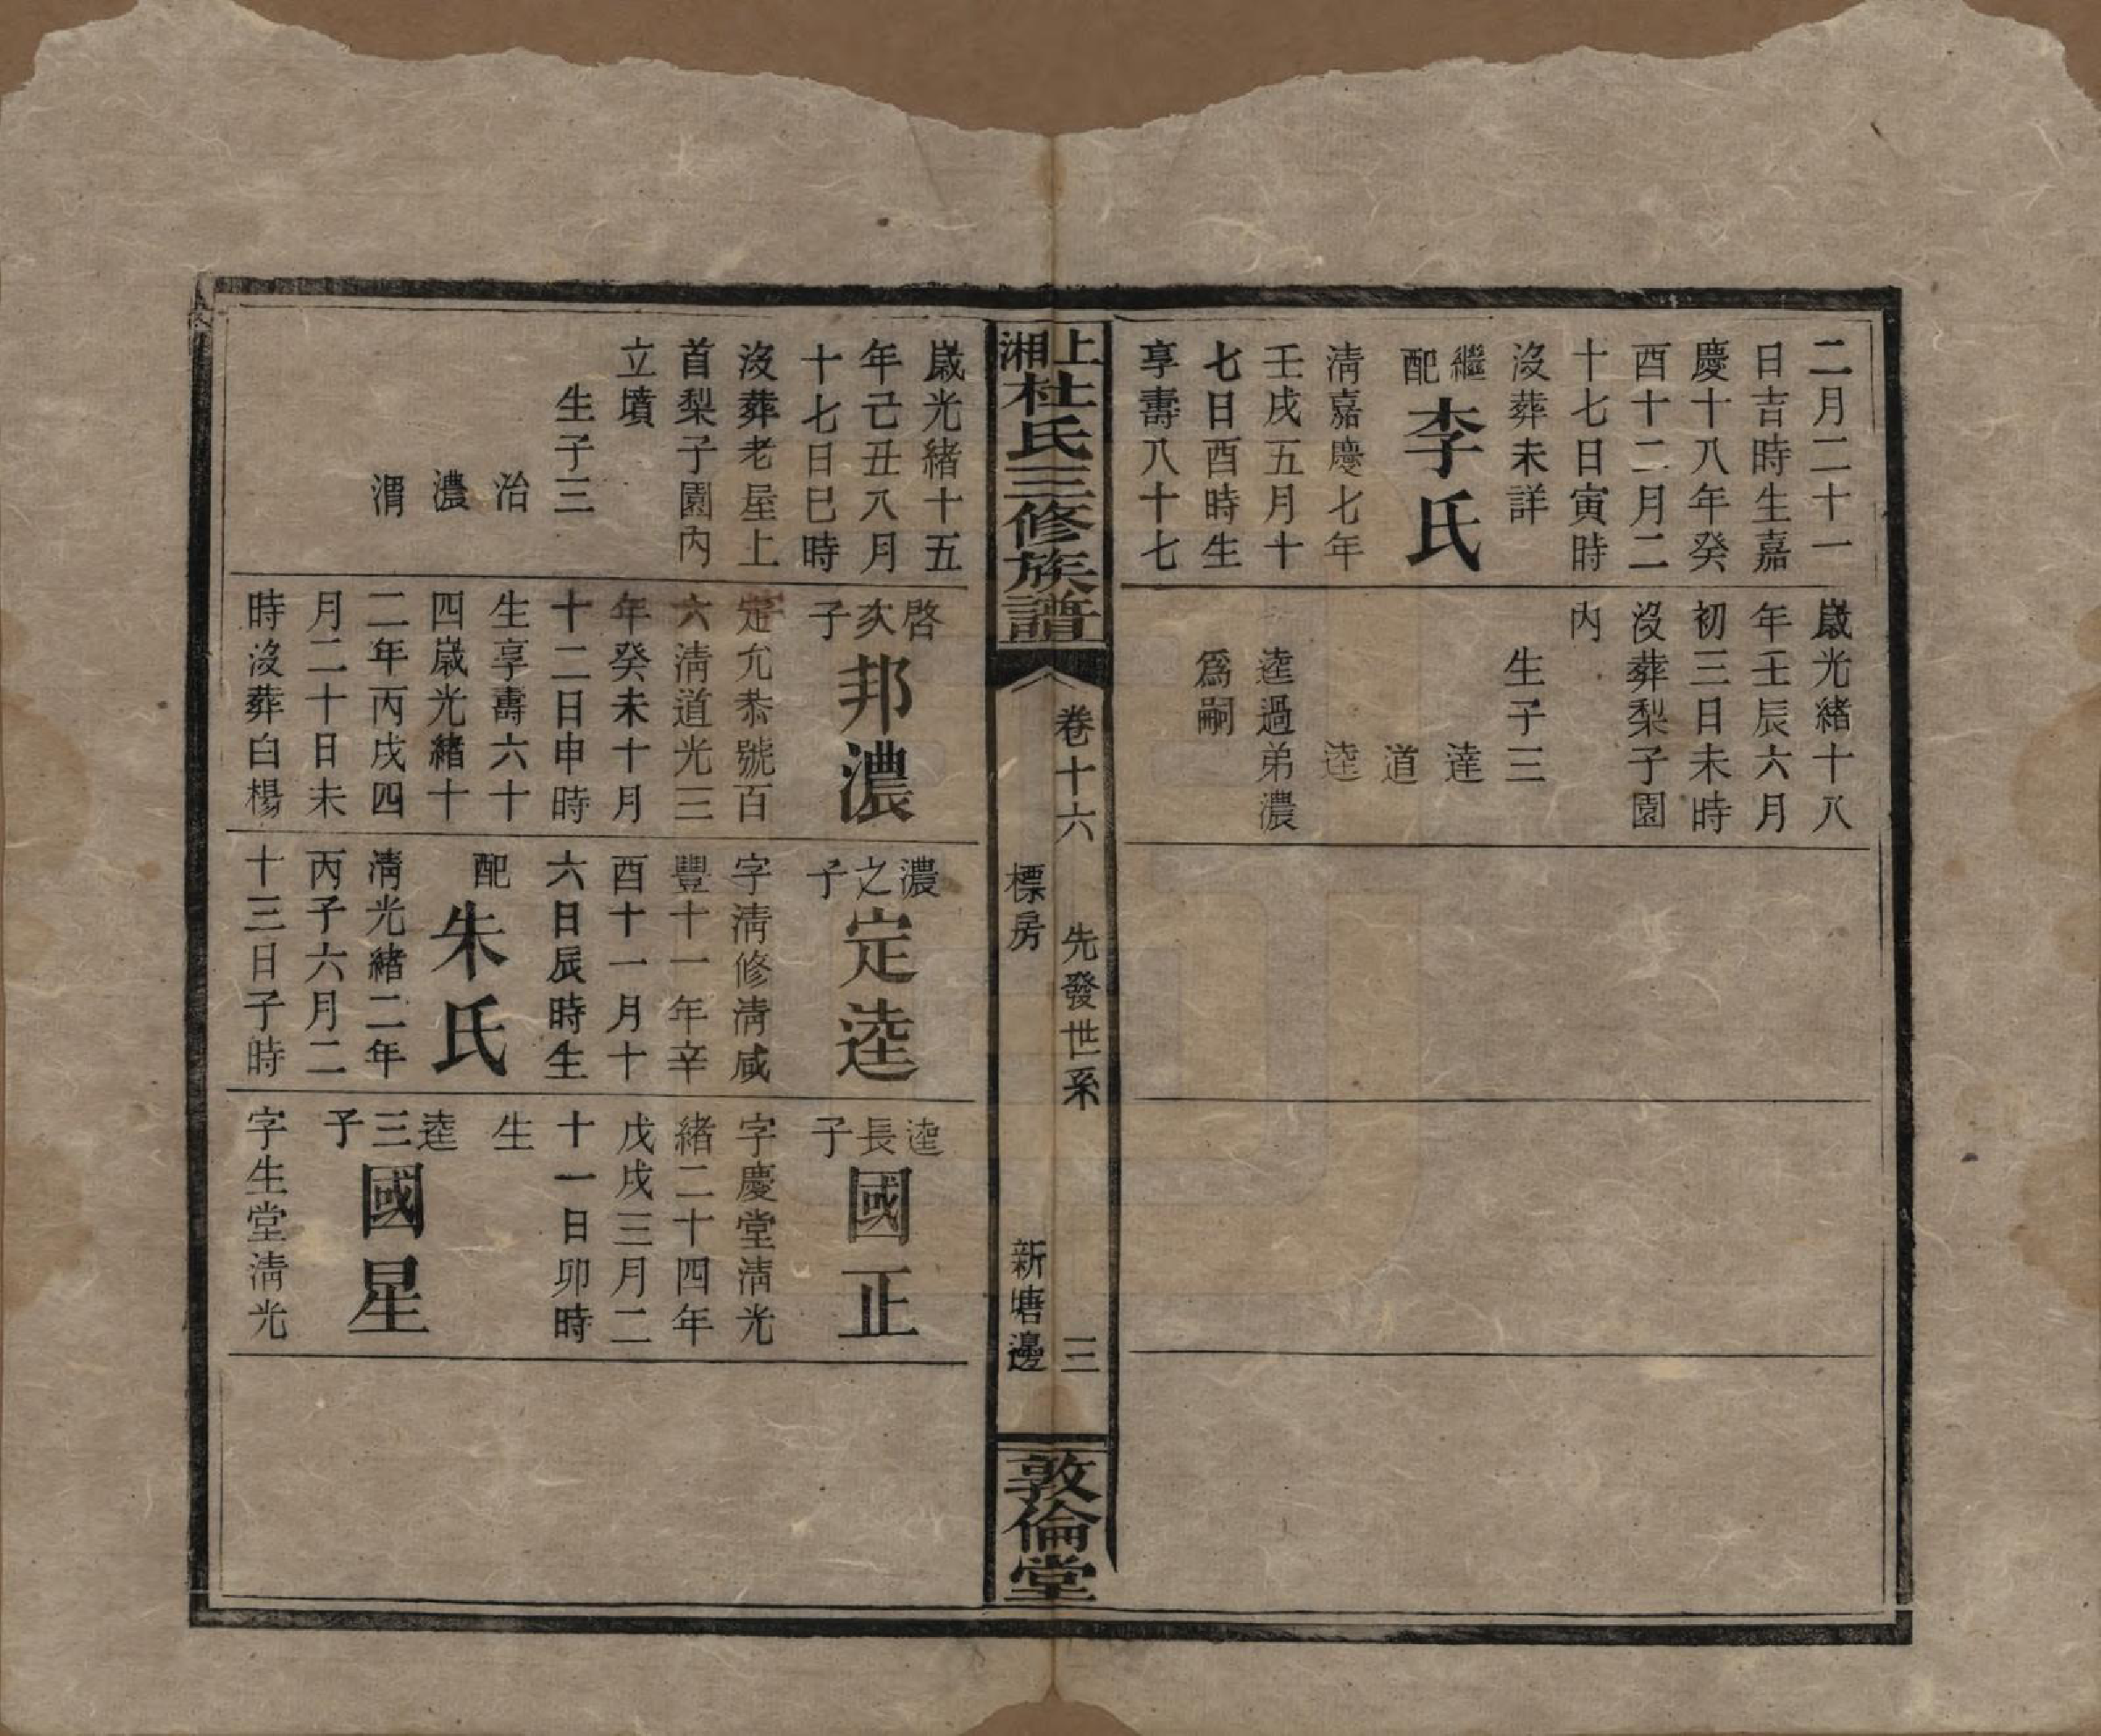 二月二十一
日吉時生嘉
慶十八年癸
酉十二月二
十七日寅時
沒葬未詳
繼配李氏
清嘉慶七年
壬戌五月十
七日酉時生
享壽八十七
歲光緒十八
年壬辰六月
初三日未時
沒葬梨子園
內
生子三
達
道
逵
逵過弟濃
爲嗣
上湘杜氏三修族譜
卷十六 先發世系 三
標房 新塘邊
敦倫堂
歲光緒十五
年己丑八月
十七日巳時
沒葬老星上
首梨子園內
立墳
生子三
治
濃
渭
啓次子邦濃
定允恭號百
六清道光三
年癸未十月
十二日申時
生享壽六十
四歲光緒十
二年丙戌四
月二十日未
時沒葬白楊
濃之子定逵
字淸修淸咸
豐十一年辛
酉十一月十
六日辰時生
配朱氏
淸光緒二年
丙子六月二
十三日子時
逵長子國正
字慶堂淸光
緒二十四年
戊戌三月二
十一日卯時
生
逵三子國星
字生堂淸光